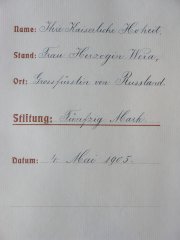 Name: Ihre Kaiserliche Hoheit,
Stand: Frau Herzogin Wera,
Ort: Grossfürstin von Russland.
Stiftung: Fünfzig Mark
Datum: 4. Mai 1905.